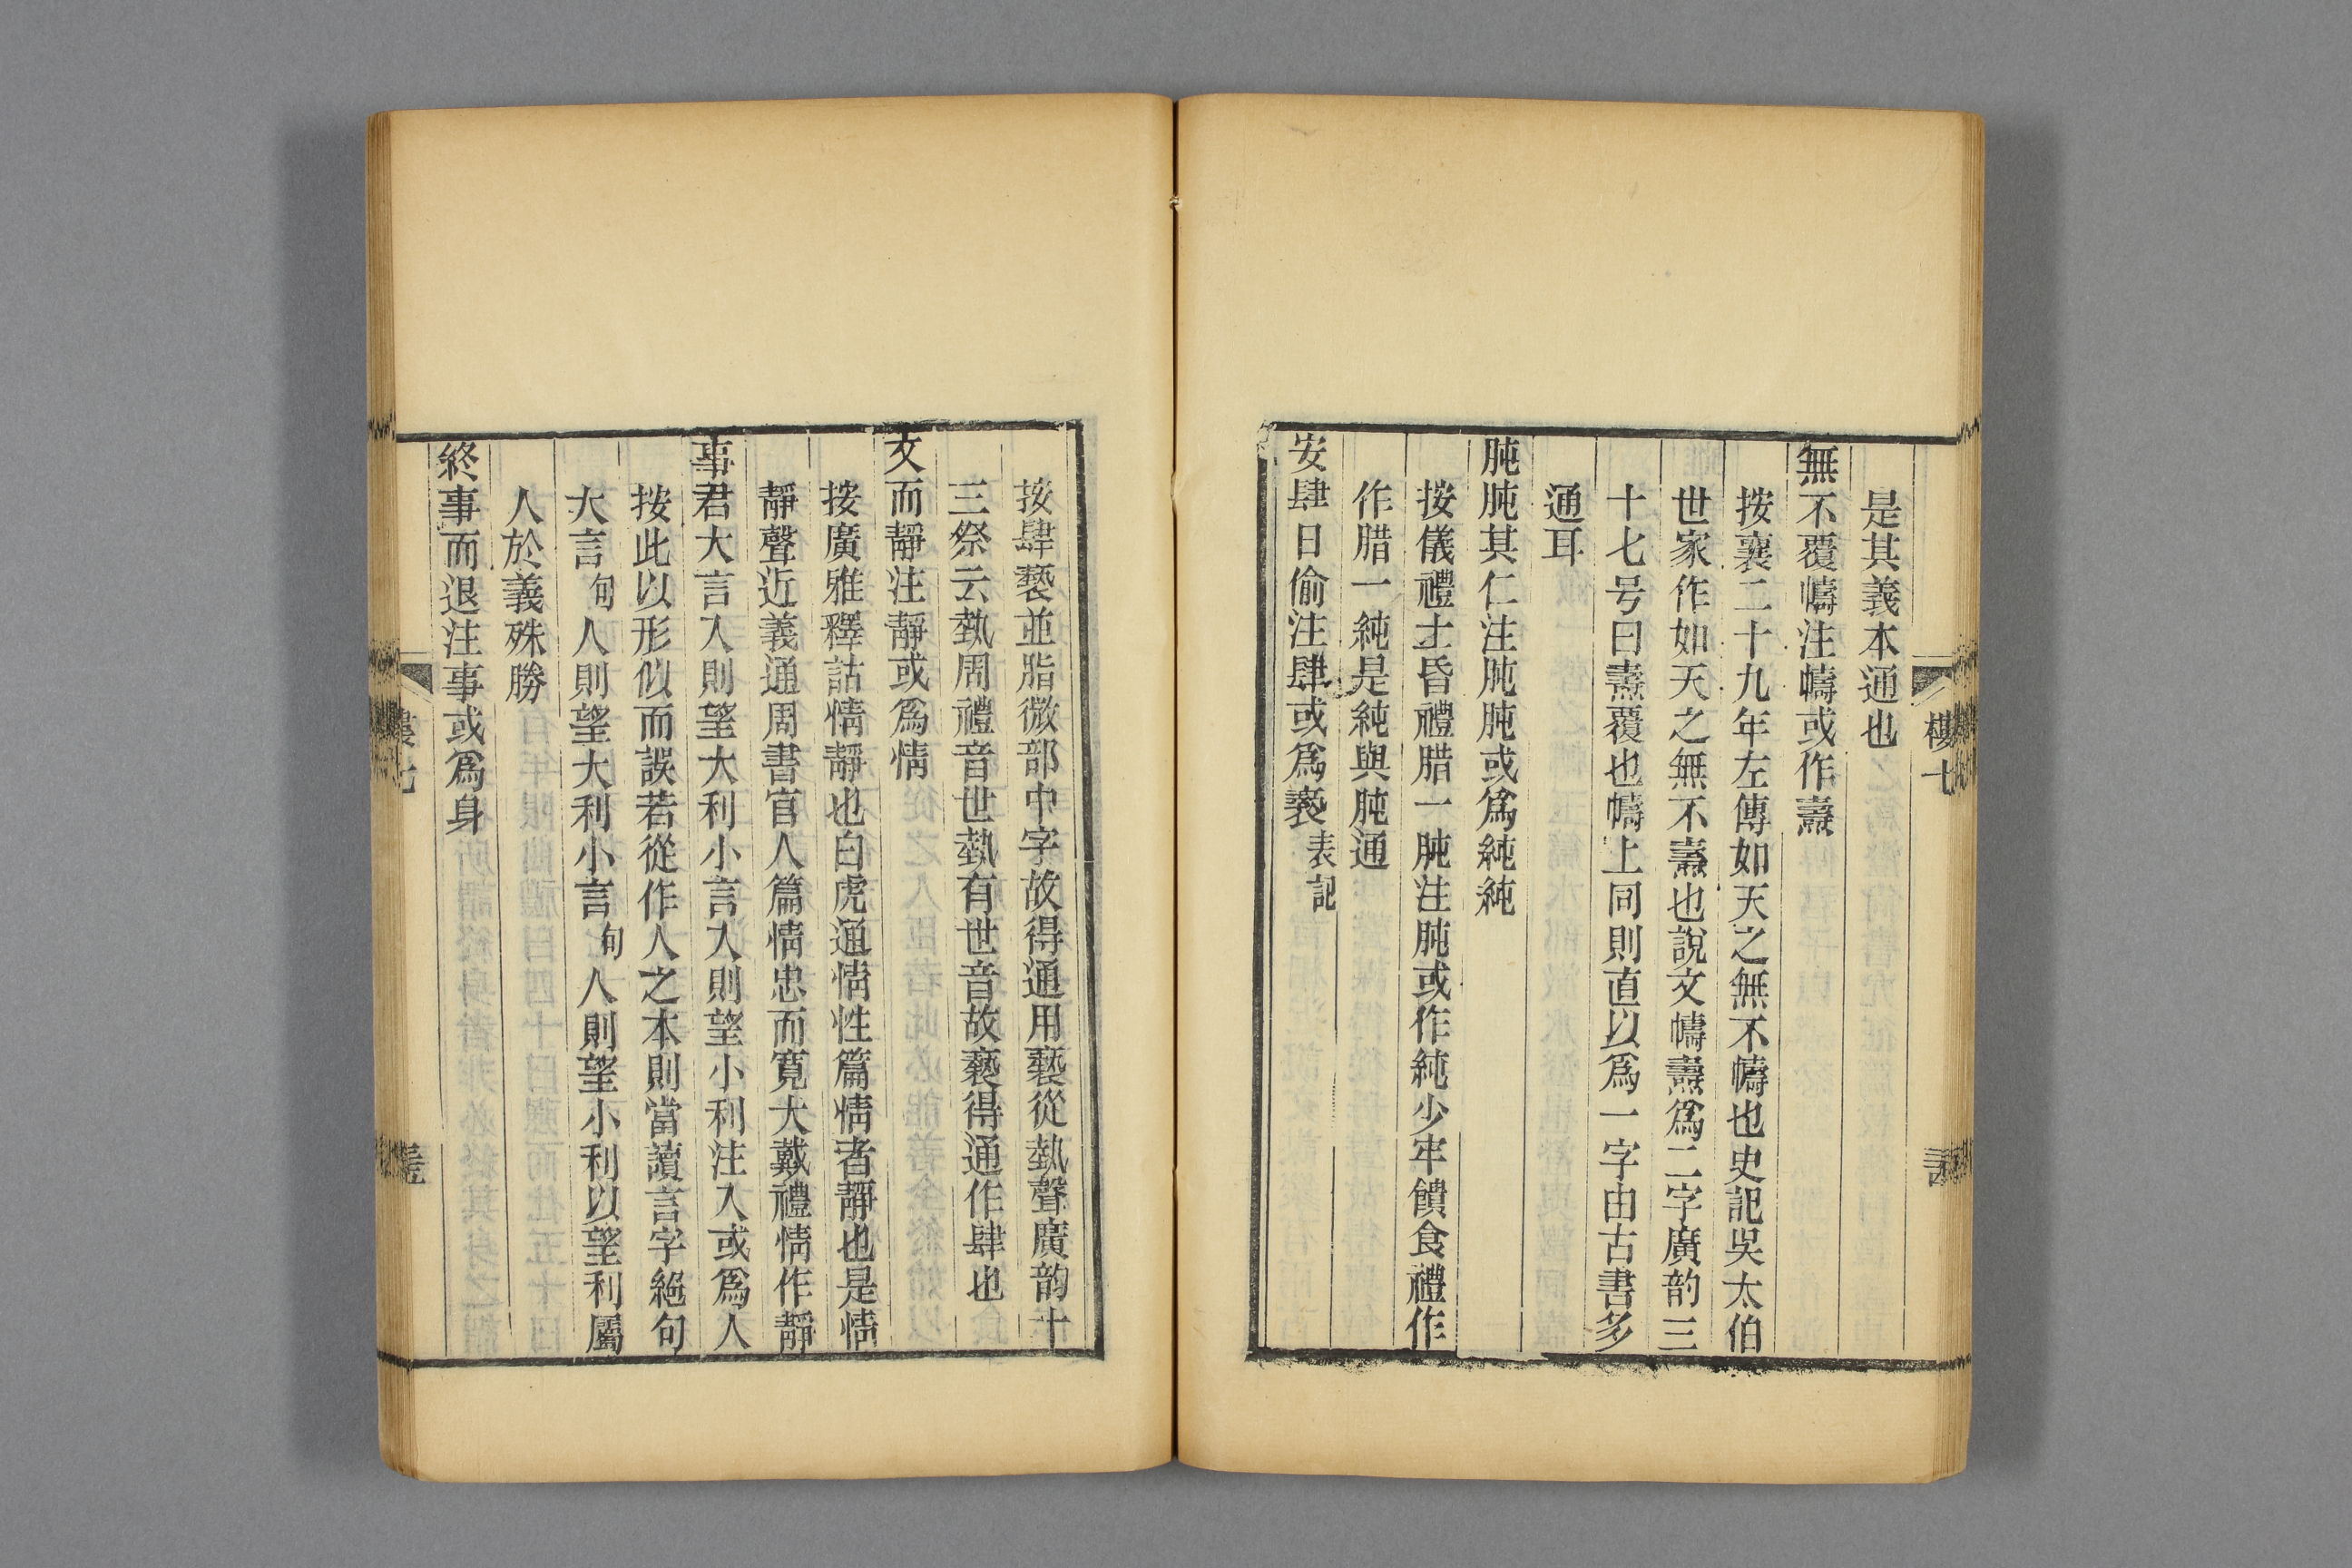 是其義本通也
無不覆幬注幬或作燾
按襄二十九年左傳如天之無不幬也史記吳太伯
世家作如天之無不燾也說文幬燾爲二字廣韵三
十七号曰燾覆也幬上同則直以爲一字由古書多
通耳
肫肫其仁注肫肫或爲純純
按儀禮士昏禮腊一肫注肫或作純少牢饋食禮作
作腊一純是純與肫通
安肆日偷注肆或爲褻表記
按肆褻並脂微部中字故得通用褻從埶聲廣韵十
三祭云埶周禮音世埶有世音故褻得通作肆也
文而靜注靜或爲情
按廣雅釋詁情靜也白虎通情性篇情者靜也是情
靜聲近義通周書官人篇情忠而寬大戴禮情作靜
事君大言入則望大利小言入則望小利注入或爲人
按此以形似而誤若從作人之本則當讀言字絕句
大言句人則望大利小言句人則望小利以望利屬
人於義殊勝
終事而退注事或爲身